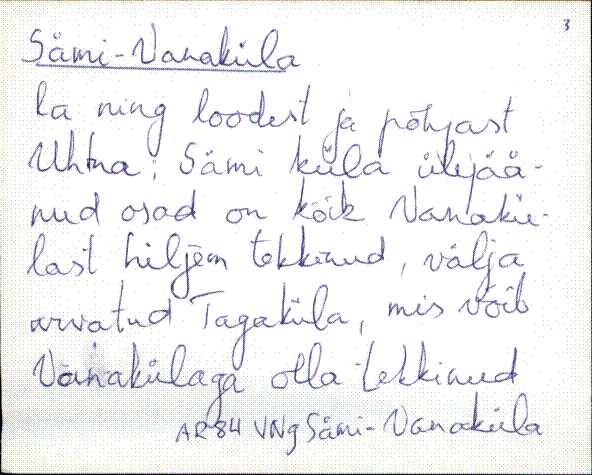 3
Sämi-Vanaküla
la ning loodest ja põhjast
Uhtna. Sämi küla ülejää-
nud osad on kõik Vanakü-
last hiljem tekkinud, välja
arvatud Tagaküla, mis võib
Vanakülaga olla tekkinud
AR84 VNg Sämi-Vanaküla